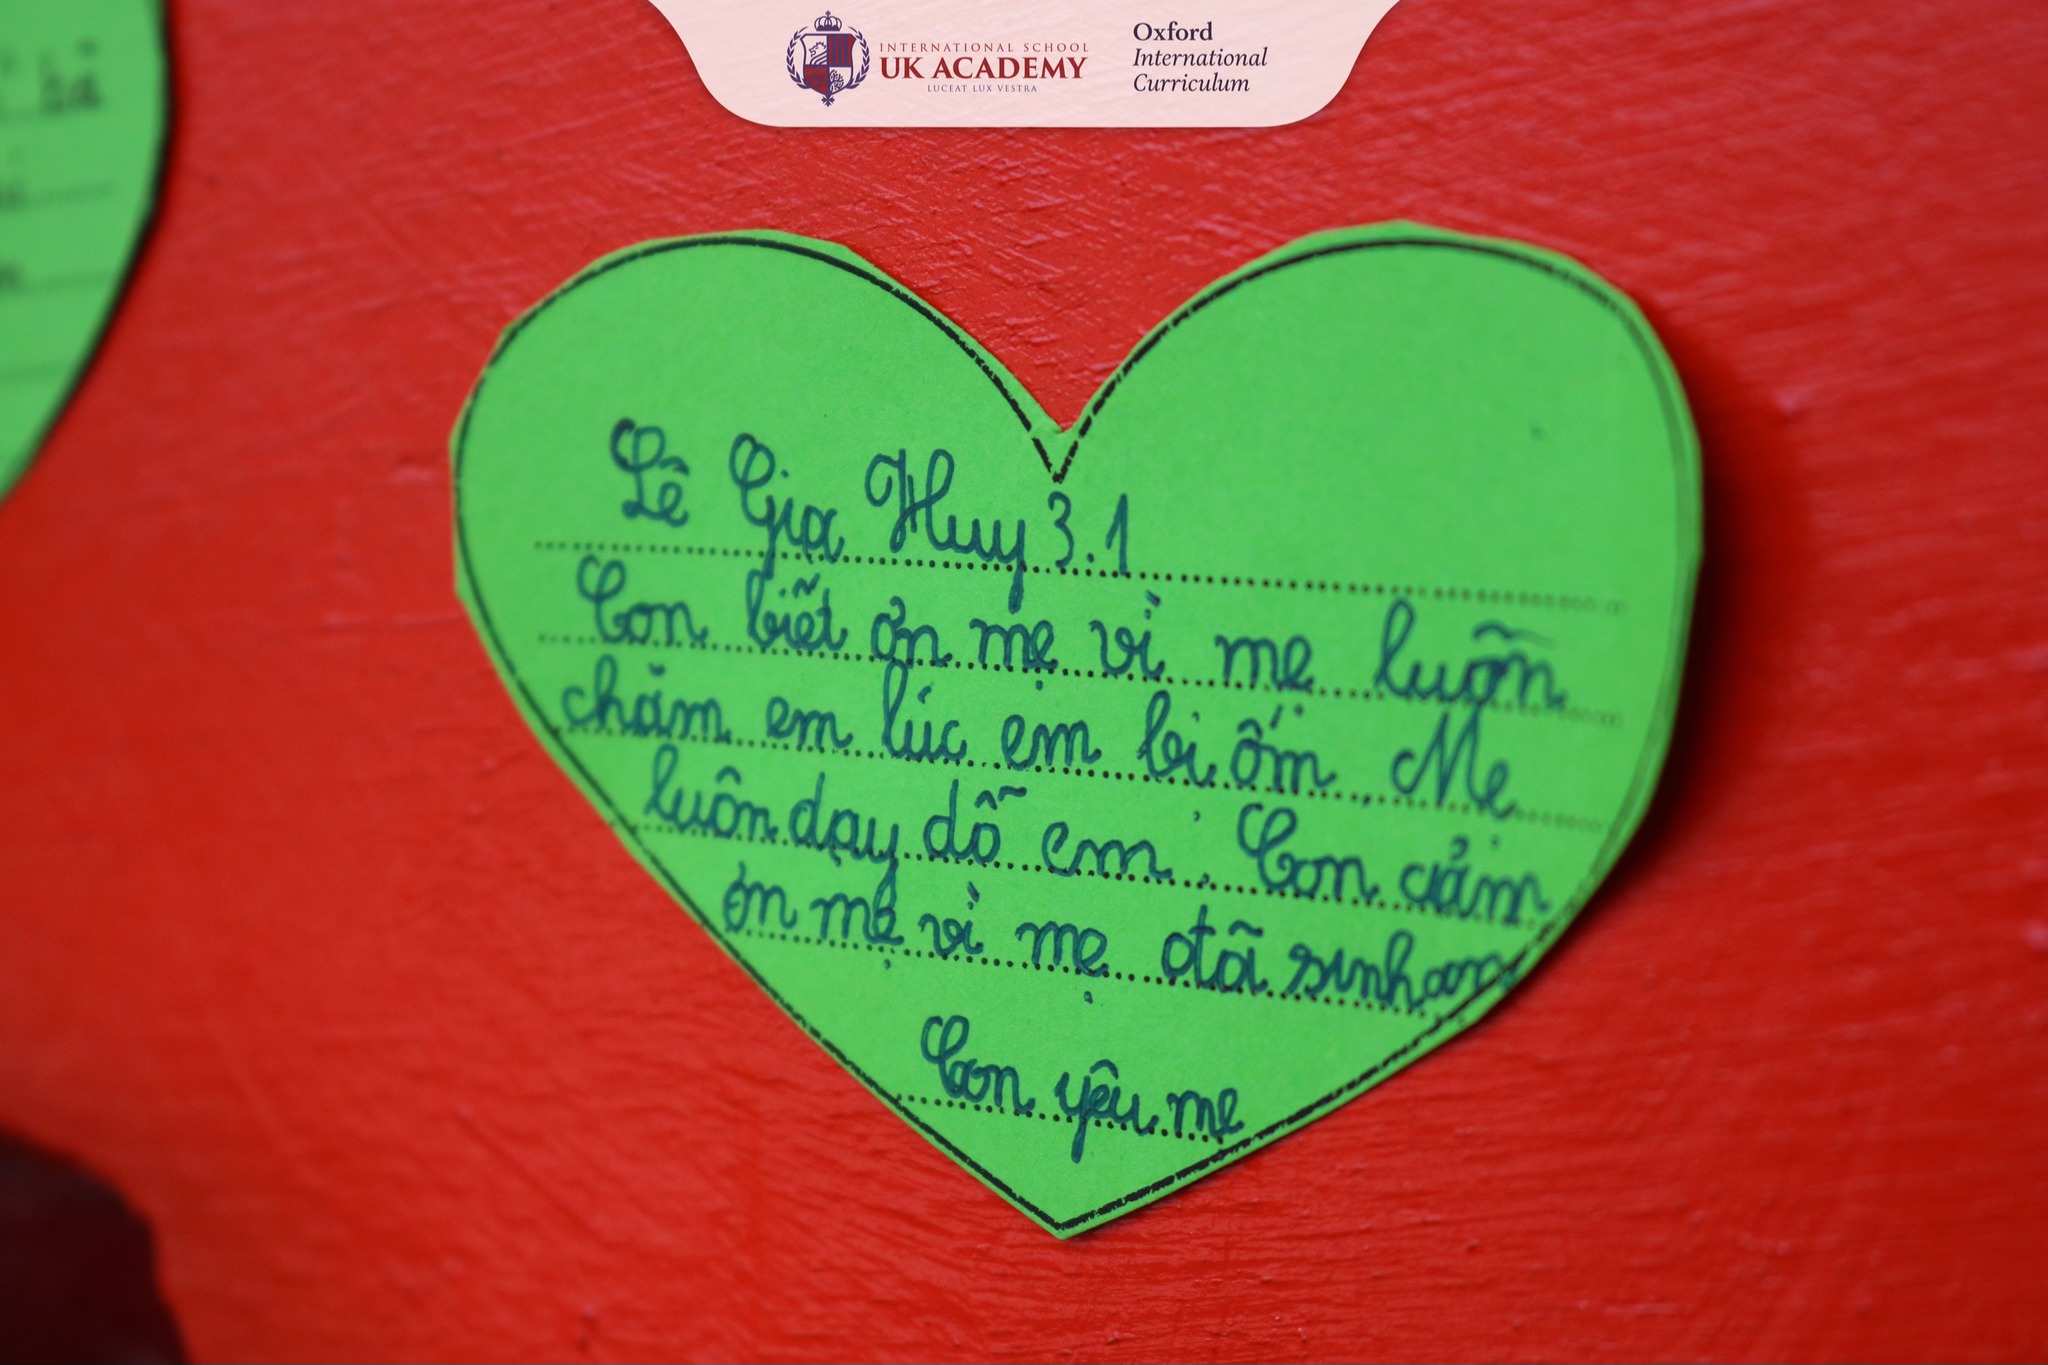 INTERNATIONAL SCHOOL
UK ACADEMY
LUCEAT LUX VESTRA
Oxford
International
Curriculum
Lê Gia Huy 3.1
Con biết ơn mẹ vì mẹ luôn
chăm em lúc em bị ốm. Mẹ
luôn dạy dỗ em. Con cảm
ơn mẹ vì mẹ đã sinh con
Con yêu mẹ